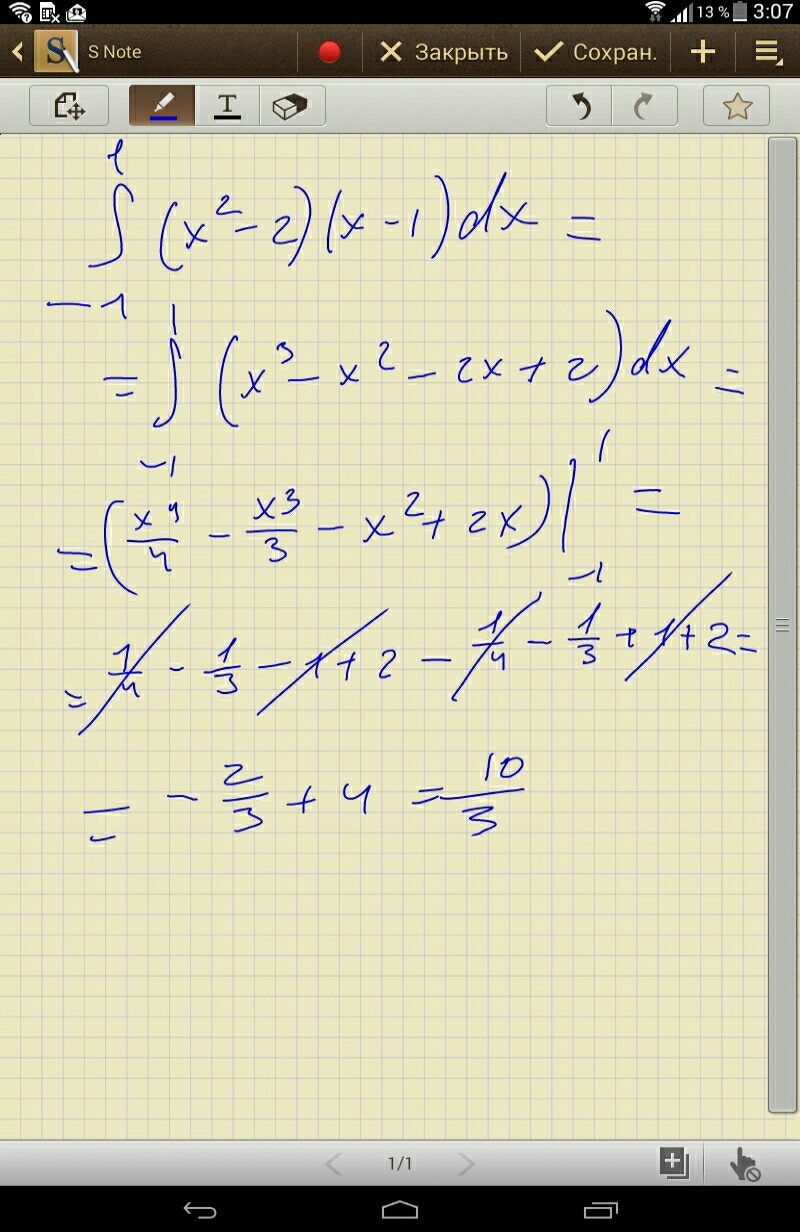 13 % 3:07
S Note Закрыть Сохран.
T
1
∫ (x² - 2)(x - 1) dx =
-1
1
= ∫ (x³ - x² - 2x + 2) dx =
-1
= (x⁴/4 - x³/3 - x² + 2x) |₋₁¹ =
= 1/4 - 1/3 - 1 + 2 - 1/4 - 1/3 + 1 + 2 =
= - 2/3 + 4 = 10/3
1/1